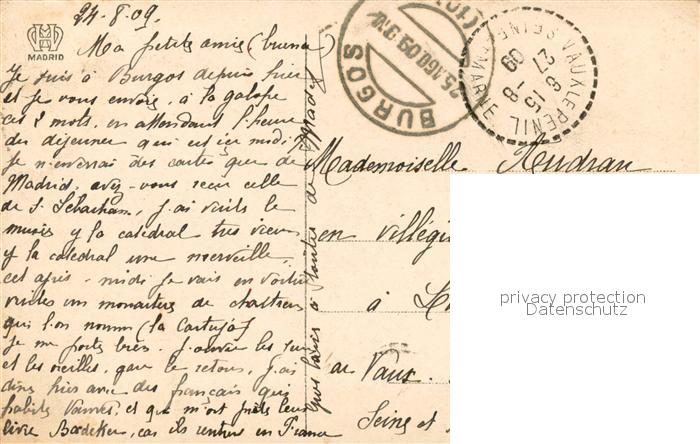 24-8-09.
MADRID
Ma petite amie (bruna)
Je suis à Burgos depuis hier
et je vous envoie, à la galope
ces 2 mots, en attendant l'heure
du déjeuner qui est ici midi
Je n'enverrai des cartes que de
Madrid. avez-vous reçu celle
de S. Sebastian, j'ai visité le
musée y la catedral très vieux
y la catedral une merveille,
cet après-midi je vais en voiture
visiter un monastère de chartreux
que l'on nomme (la Cartuja)
Je me porte bien. J'ouvre les yeux
et les oreilles, gare le retour, j'ai
diné hier avec des français qui
habite Vanves, et qui m'ont prêté leur
livre Baedeker, car ils rentrent en France
Gros baisers à toutes de
BURGOS
25.AGO.09
VAUX-LE-PENIL
SEINE ET MARNE
15
27-8
09
Mademoiselle Audran
en villégi
à
au Vaux.
Seine et
privacy protection
Datenschutz